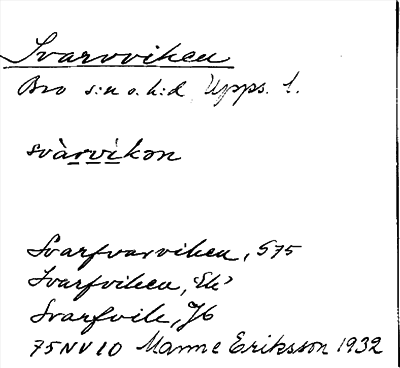 Svarvviken
Bro s:n o. h:d Upps. l.
svàrvikən
Svarfvarviken, S75
Svarfviken, Ek
Svarfvik, J6
75NV10 Manne Eriksson 1932